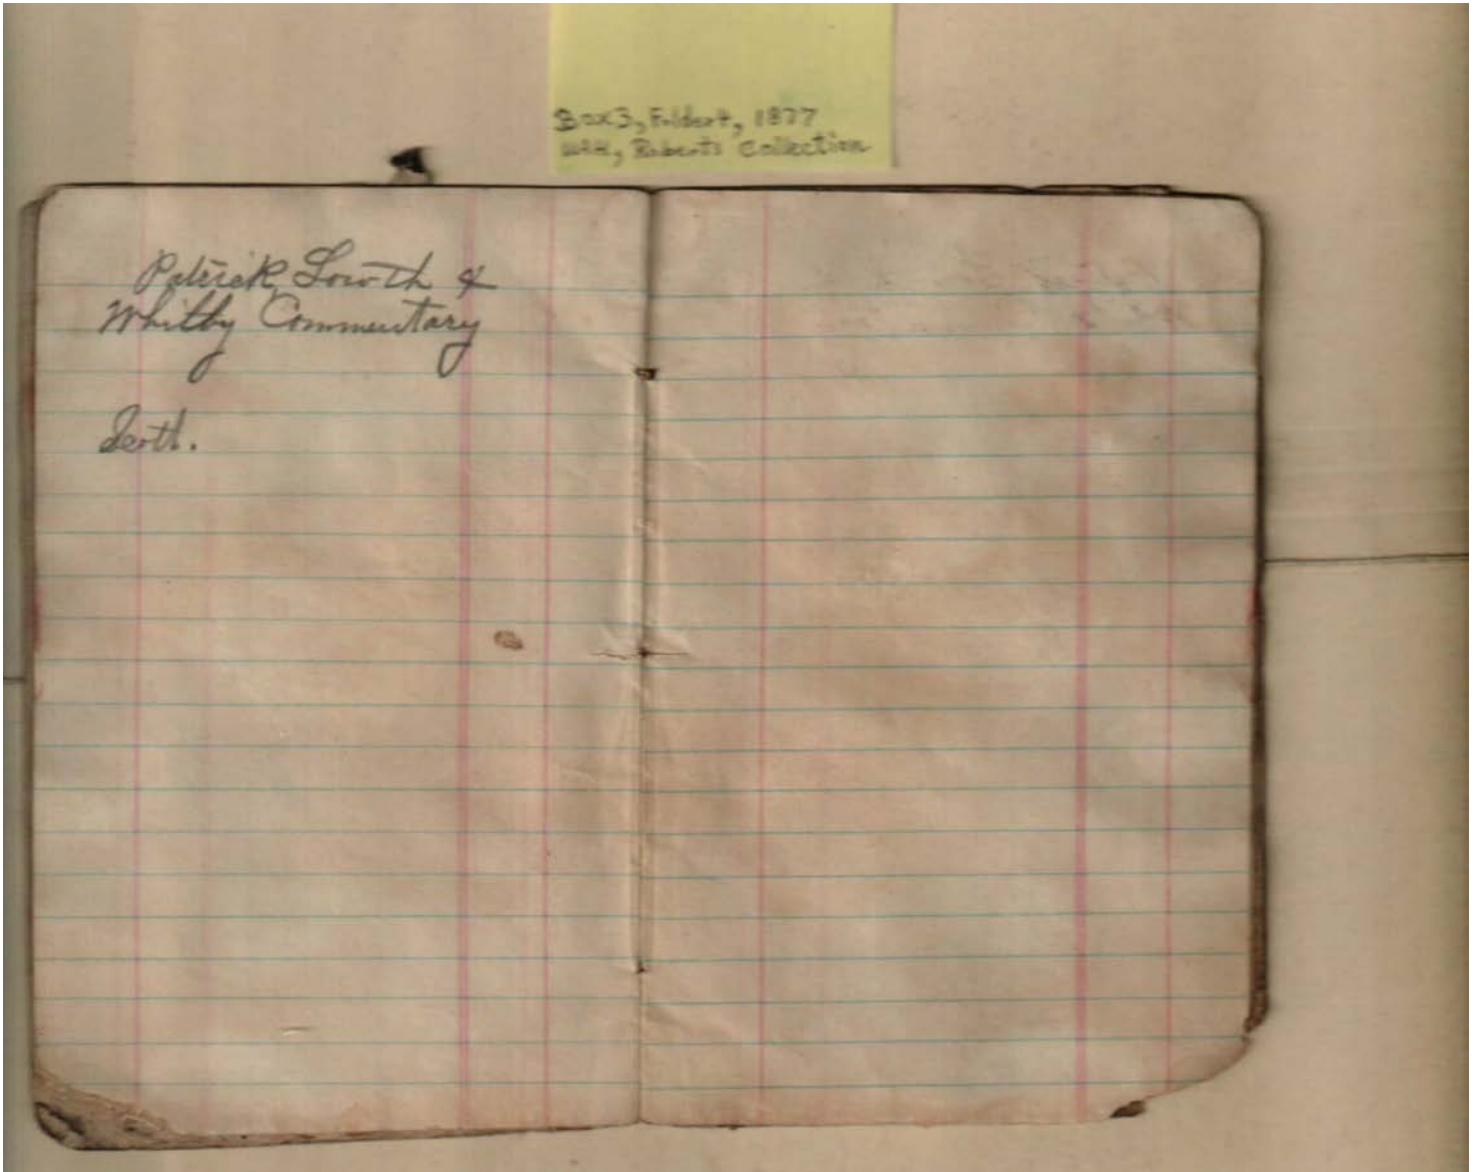 Box3, Folder4, 1877
WRH, Roberts Collection
Patrick Lowth &
Whitby Commentary
Scott.